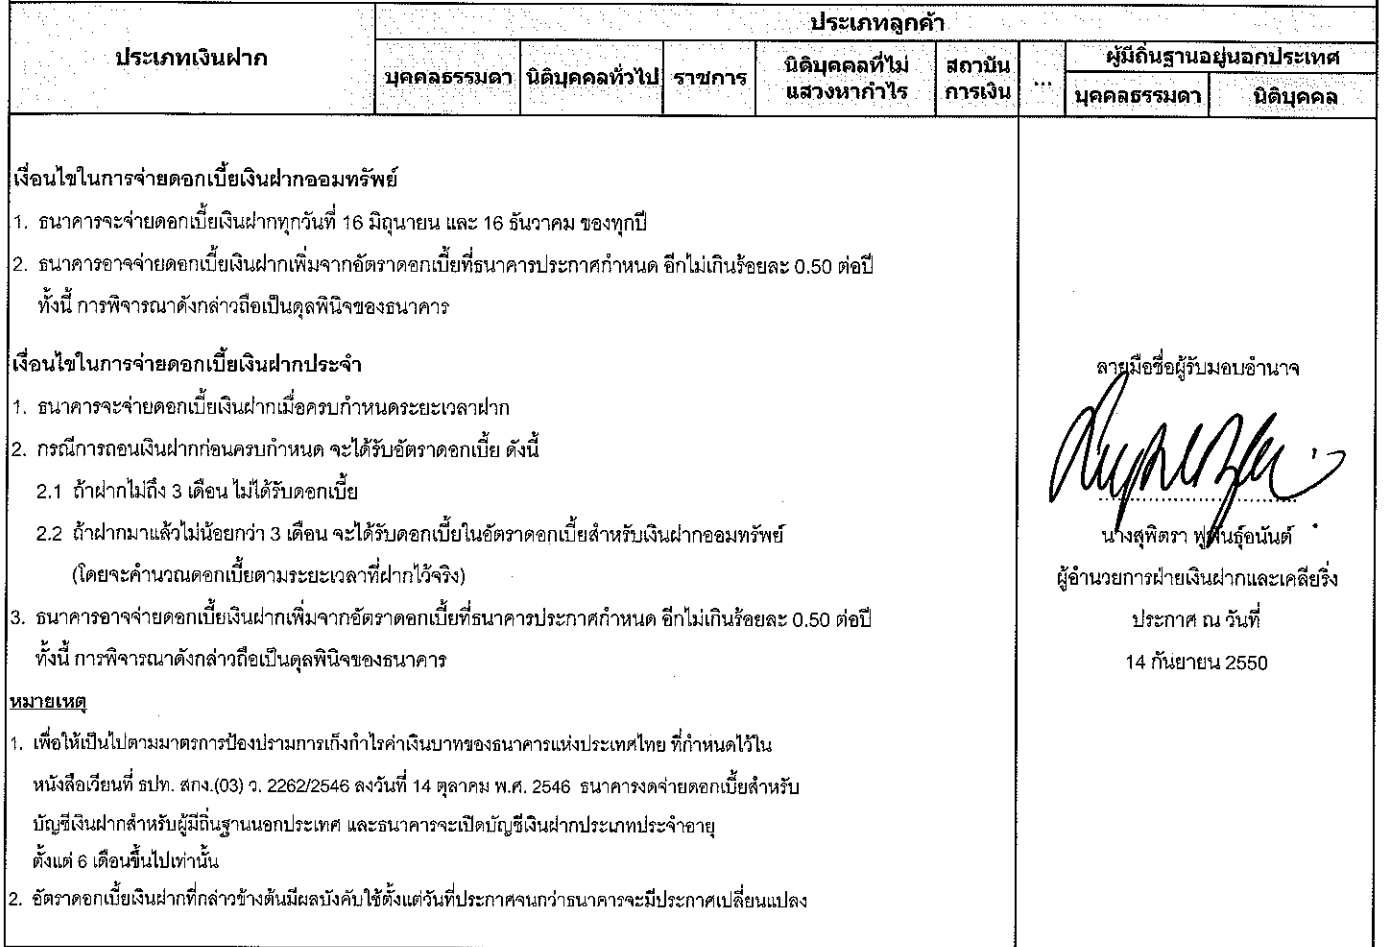 ประเภทเงินฝาก
ประเภทลูกค้า
บุคคลธรรมดา นิติบุคคลทั่วไป ราชการ นิติบุคคลที่ไม่แสวงหากำไร สถาบันการเงิน ... ผู้มีถิ่นฐานอยู่นอกประเทศ
บุคคลธรรมดา นิติบุคคล
เงื่อนไขในการจ่ายดอกเบี้ยเงินฝากออมทรัพย์
1. ธนาคารจะจ่ายดอกเบี้ยเงินฝากทุกวันที่ 16 มิถุนายน และ 16 ธันวาคม ของทุกปี
2. ธนาคารอาจจ่ายดอกเบี้ยเงินฝากเพิ่มจากอัตราดอกเบี้ยที่ธนาคารประกาศกำหนด อีกไม่เกินร้อยละ 0.50 ต่อปี
ทั้งนี้ การพิจารณาดังกล่าวถือเป็นดุลพินิจของธนาคาร
เงื่อนไขในการจ่ายดอกเบี้ยเงินฝากประจำ
1. ธนาคารจะจ่ายดอกเบี้ยเงินฝากเมื่อครบกำหนดระยะเวลาฝาก
2. กรณีการถอนเงินฝากก่อนครบกำหนด จะได้รับอัตราดอกเบี้ย ดังนี้
2.1 ถ้าฝากไม่ถึง 3 เดือน ไม่ได้รับดอกเบี้ย
2.2 ถ้าฝากมาแล้วไม่น้อยกว่า 3 เดือน จะได้รับดอกเบี้ยในอัตราดอกเบี้ยสำหรับเงินฝากออมทรัพย์
(โดยจะคำนวณดอกเบี้ยตามระยะเวลาที่ฝากไว้จริง)
3. ธนาคารอาจจ่ายดอกเบี้ยเงินฝากเพิ่มจากอัตราดอกเบี้ยที่ธนาคารประกาศกำหนด อีกไม่เกินร้อยละ 0.50 ต่อปี
ทั้งนี้ การพิจารณาดังกล่าวถือเป็นดุลพินิจของธนาคาร
หมายเหตุ
1. เพื่อให้เป็นไปตามมาตรการป้องปรามการเก็งกำไรค่าเงินบาทของธนาคารแห่งประเทศไทย ที่กำหนดไว้ใน
หนังสือเวียนที่ ธปท. สกง.(03) ว. 2262/2546 ลงวันที่ 14 ตุลาคม พ.ศ. 2546 ธนาคารงดจ่ายดอกเบี้ยสำหรับ
บัญชีเงินฝากสำหรับผู้มีถิ่นฐานนอกประเทศ และธนาคารจะเปิดบัญชีเงินฝากประเภทประจำอายุ
ตั้งแต่ 6 เดือนขึ้นไปเท่านั้น
2. อัตราดอกเบี้ยเงินฝากที่กล่าวข้างต้นมีผลบังคับใช้ตั้งแต่วันที่ประกาศจนกว่าธนาคารจะมีประกาศเปลี่ยนแปลง
ลายมือชื่อผู้รับมอบอำนาจ
นางสุพิตรา ฟูพันธุ์อนันต์
ผู้อำนวยการฝ่ายเงินฝากและเคลียริ่ง
ประกาศ ณ วันที่
14 กันยายน 2550